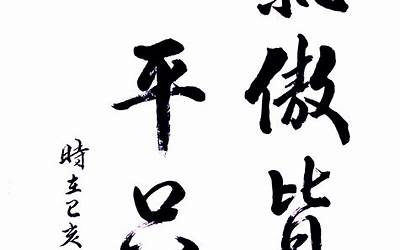 傲皆
平只
時在己亥